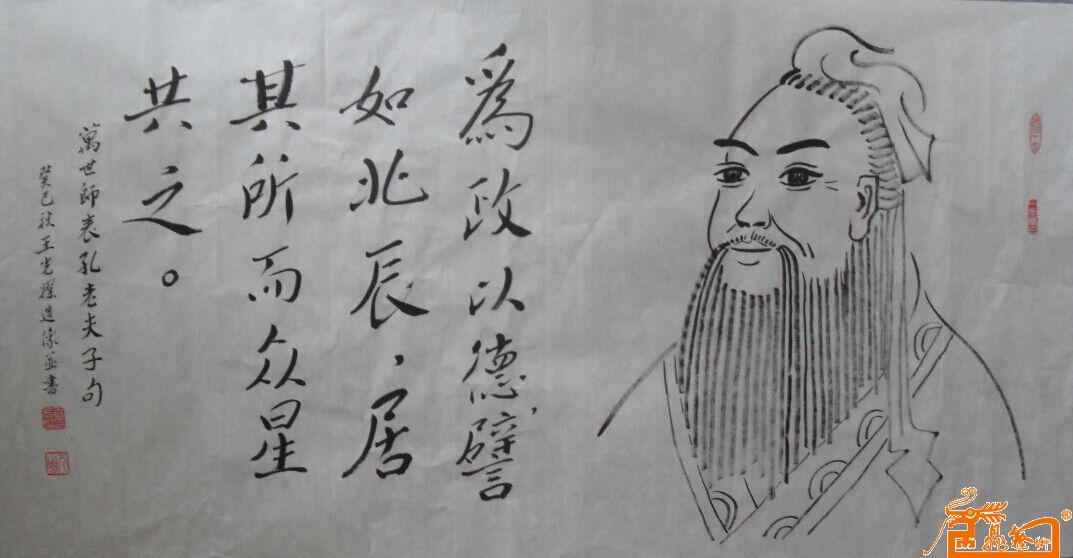 爲政以德，譬
如北辰，居
其所而众星
共之。
萬世師表孔老夫子句
癸巳秋王光耀造像並書